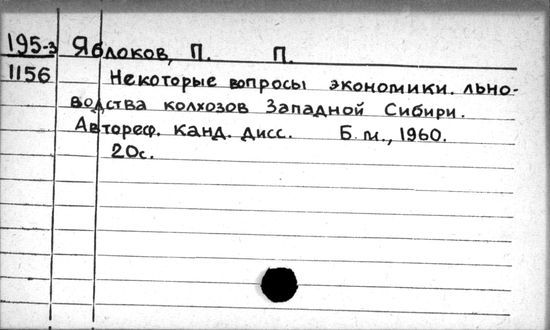 195-3 Яблоков, П. П.
1156 Некоторые вопросы экономики льно-
водства колхозов Западной Сибири.
Автореф. канд. дисс. Б.м., 1960.
20с.